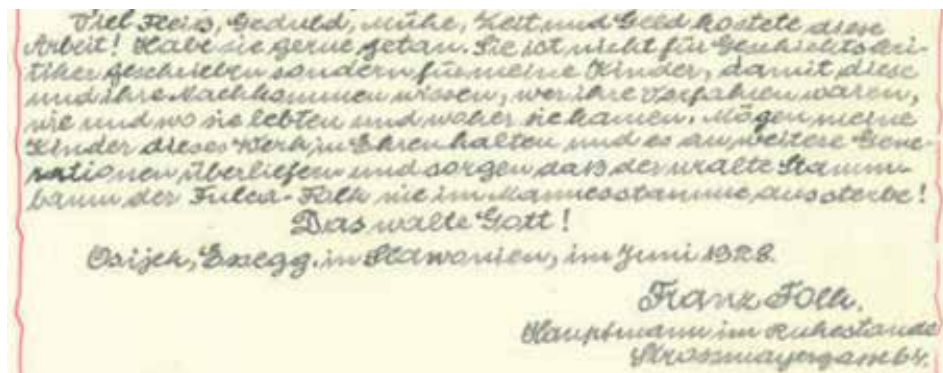 Viel Fleiß, Geduld, Mühe, Zeit und Geld kostete diese
Arbeit! Habe sie gerne getan. Sie ist nicht für Geschichtskri-
tiker geschrieben sondern für meine Kinder, damit diese
und ihre Nachkommen wissen, wer ihre Vorfahren waren,
wie und wo sie lebten und woher sie kamen. Mögen meine
Kinder dieses Werk in Ehren halten und es an weitere Gene-
rationen überliefern und sorgen daß der uralte Stamm-
baum der Fulca-Folk nie im Mannesstamme aussterbe!
Das walte Gott!
Osijek, Essegg. in Slawonien, im Juni 1928.
Franz Folk.
Hauptmann im Ruhestande
Strossmayergasse 64.